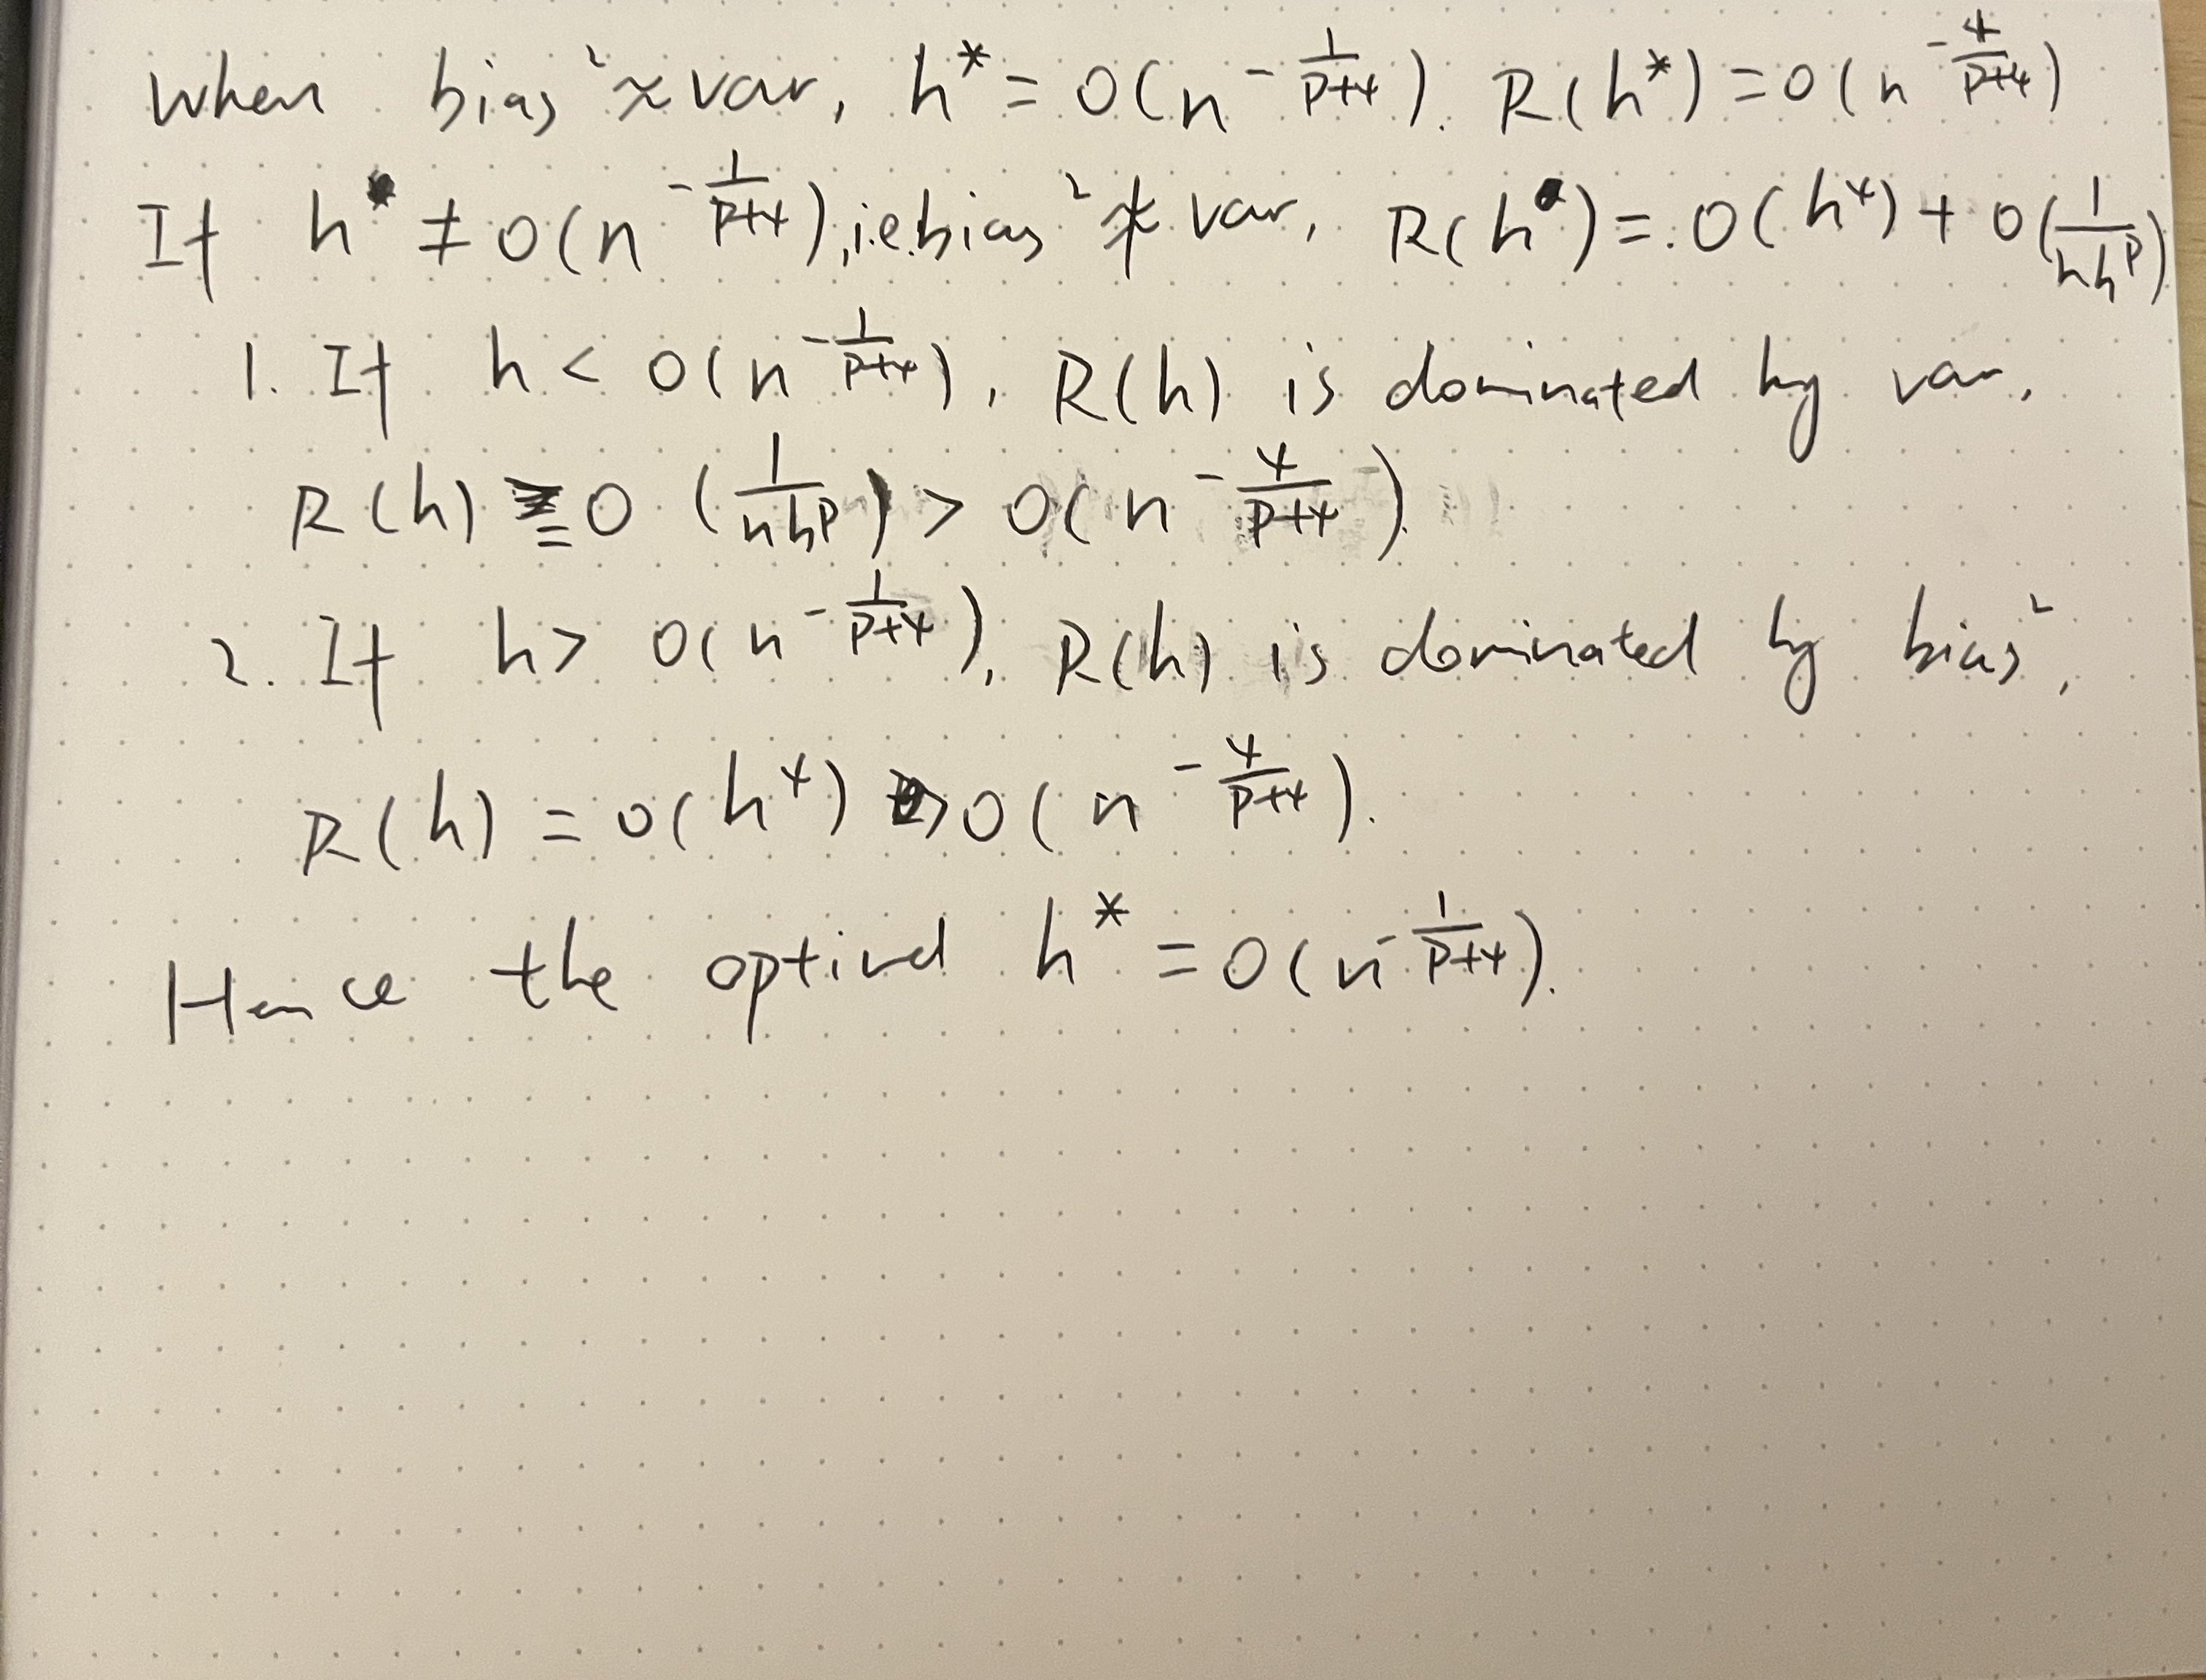 When bias² ≈ var, h* = O(n^{-1/(p+4)}). R(h*) = O(n^{-4/(p+4)})
If h ≠ O(n^{-1/(p+4)}), i.e. bias² ≉ var, R(h) = O(h⁴) + O(1/(nh^p))
1. If h < O(n^{-1/(p+4)}), R(h) is dominated by var,
R(h) = O(1/(nh^p)) > O(n^{-4/(p+4)}).
2. If h > O(n^{-1/(p+4)}), R(h) is dominated by bias²,
R(h) = O(h⁴) > O(n^{-4/(p+4)}).
Hence the optimal h* = O(n^{-1/(p+4)}).